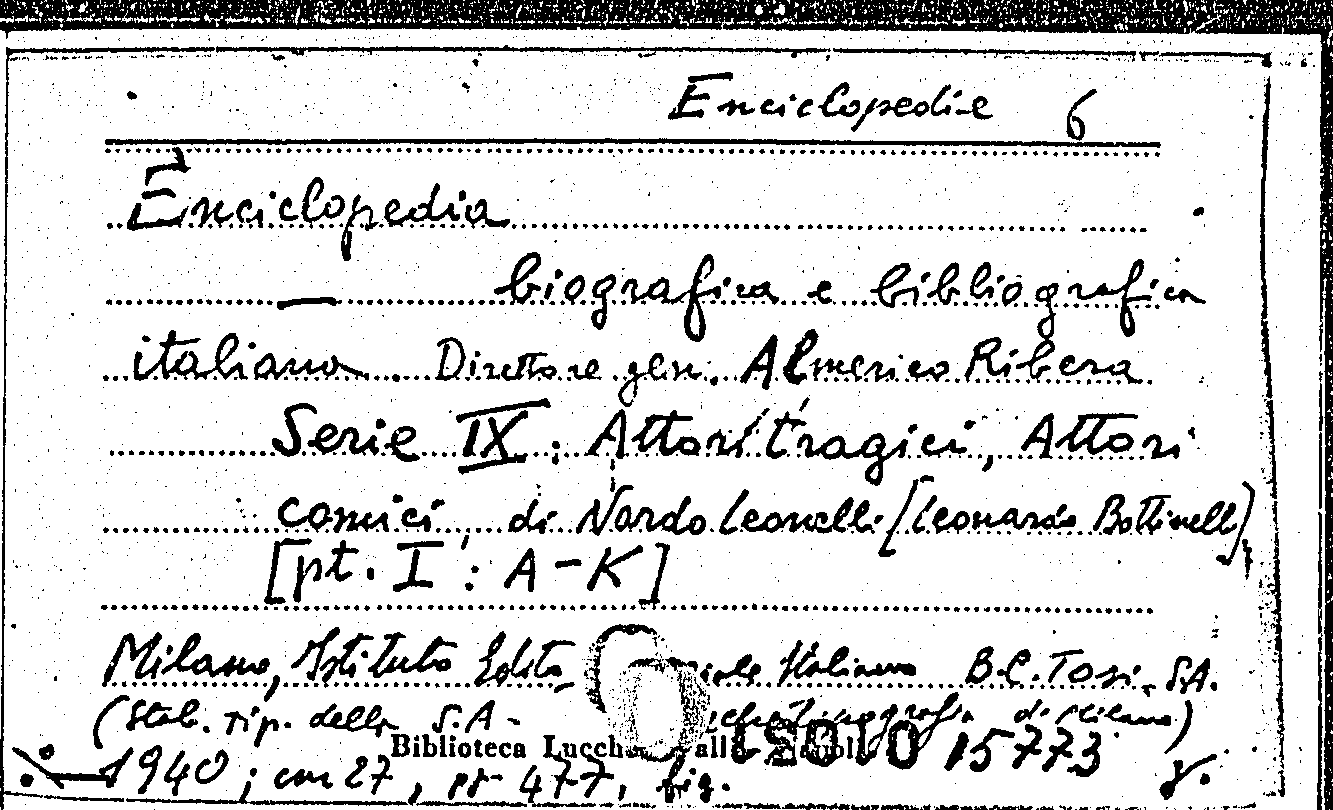 Enciclopedie 6
Enciclopedia
— biografica e bibliografica
italiana. Direttore gen. Almerico Ribera
Serie IX: Attori tragici, Attori
comici, di Nardo Leonelli [Leonardo Bottinelli],
[pt. I: A-K]
Milano, Istituto Edito- riale Italiano B.C. Tosi, S.A.
(Stab. tip. della S.A. di Milano)
Biblioteca Lucch alla 15773
1940; cm 27, pp 477, fig.